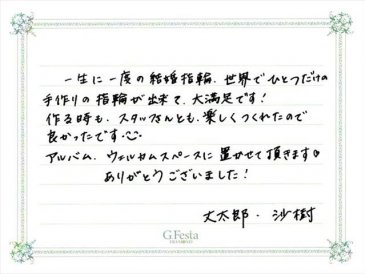 一生に一度の結婚指輪、世界でひとつだけの
手作りの指輪が出来て、大満足です!
作る時も、スタッフさんとも、楽しくつくれたので
良かったです。
アルバム、ウェルカムスペースに置かせて頂きます。
ありがとうございました!
丈太郎・沙樹
G.Festa